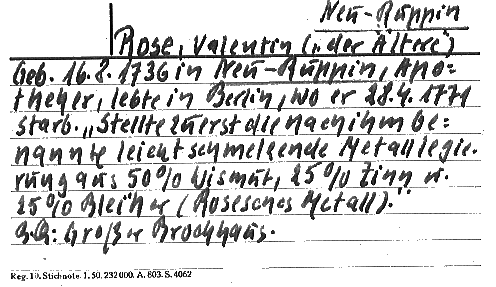 Neu-Ruppin
Rose, Valentin („der Ältere“)
Geb. 16.8.1736 in Neu-Ruppin, Apo=
theker, lebte in Berlin, wo er 28.4.1771
starb. „Stellte zuerst die nach ihm be=
nannte leicht schmelzende Metallegie=
rung aus 50% Wismut, 25% Zinn u.
25% Blei her (Rosesches Metall).“
Großer Brockhaus.
Reg. 10. Stichnote. 1. 50. 232000. A. 803. S. 4062